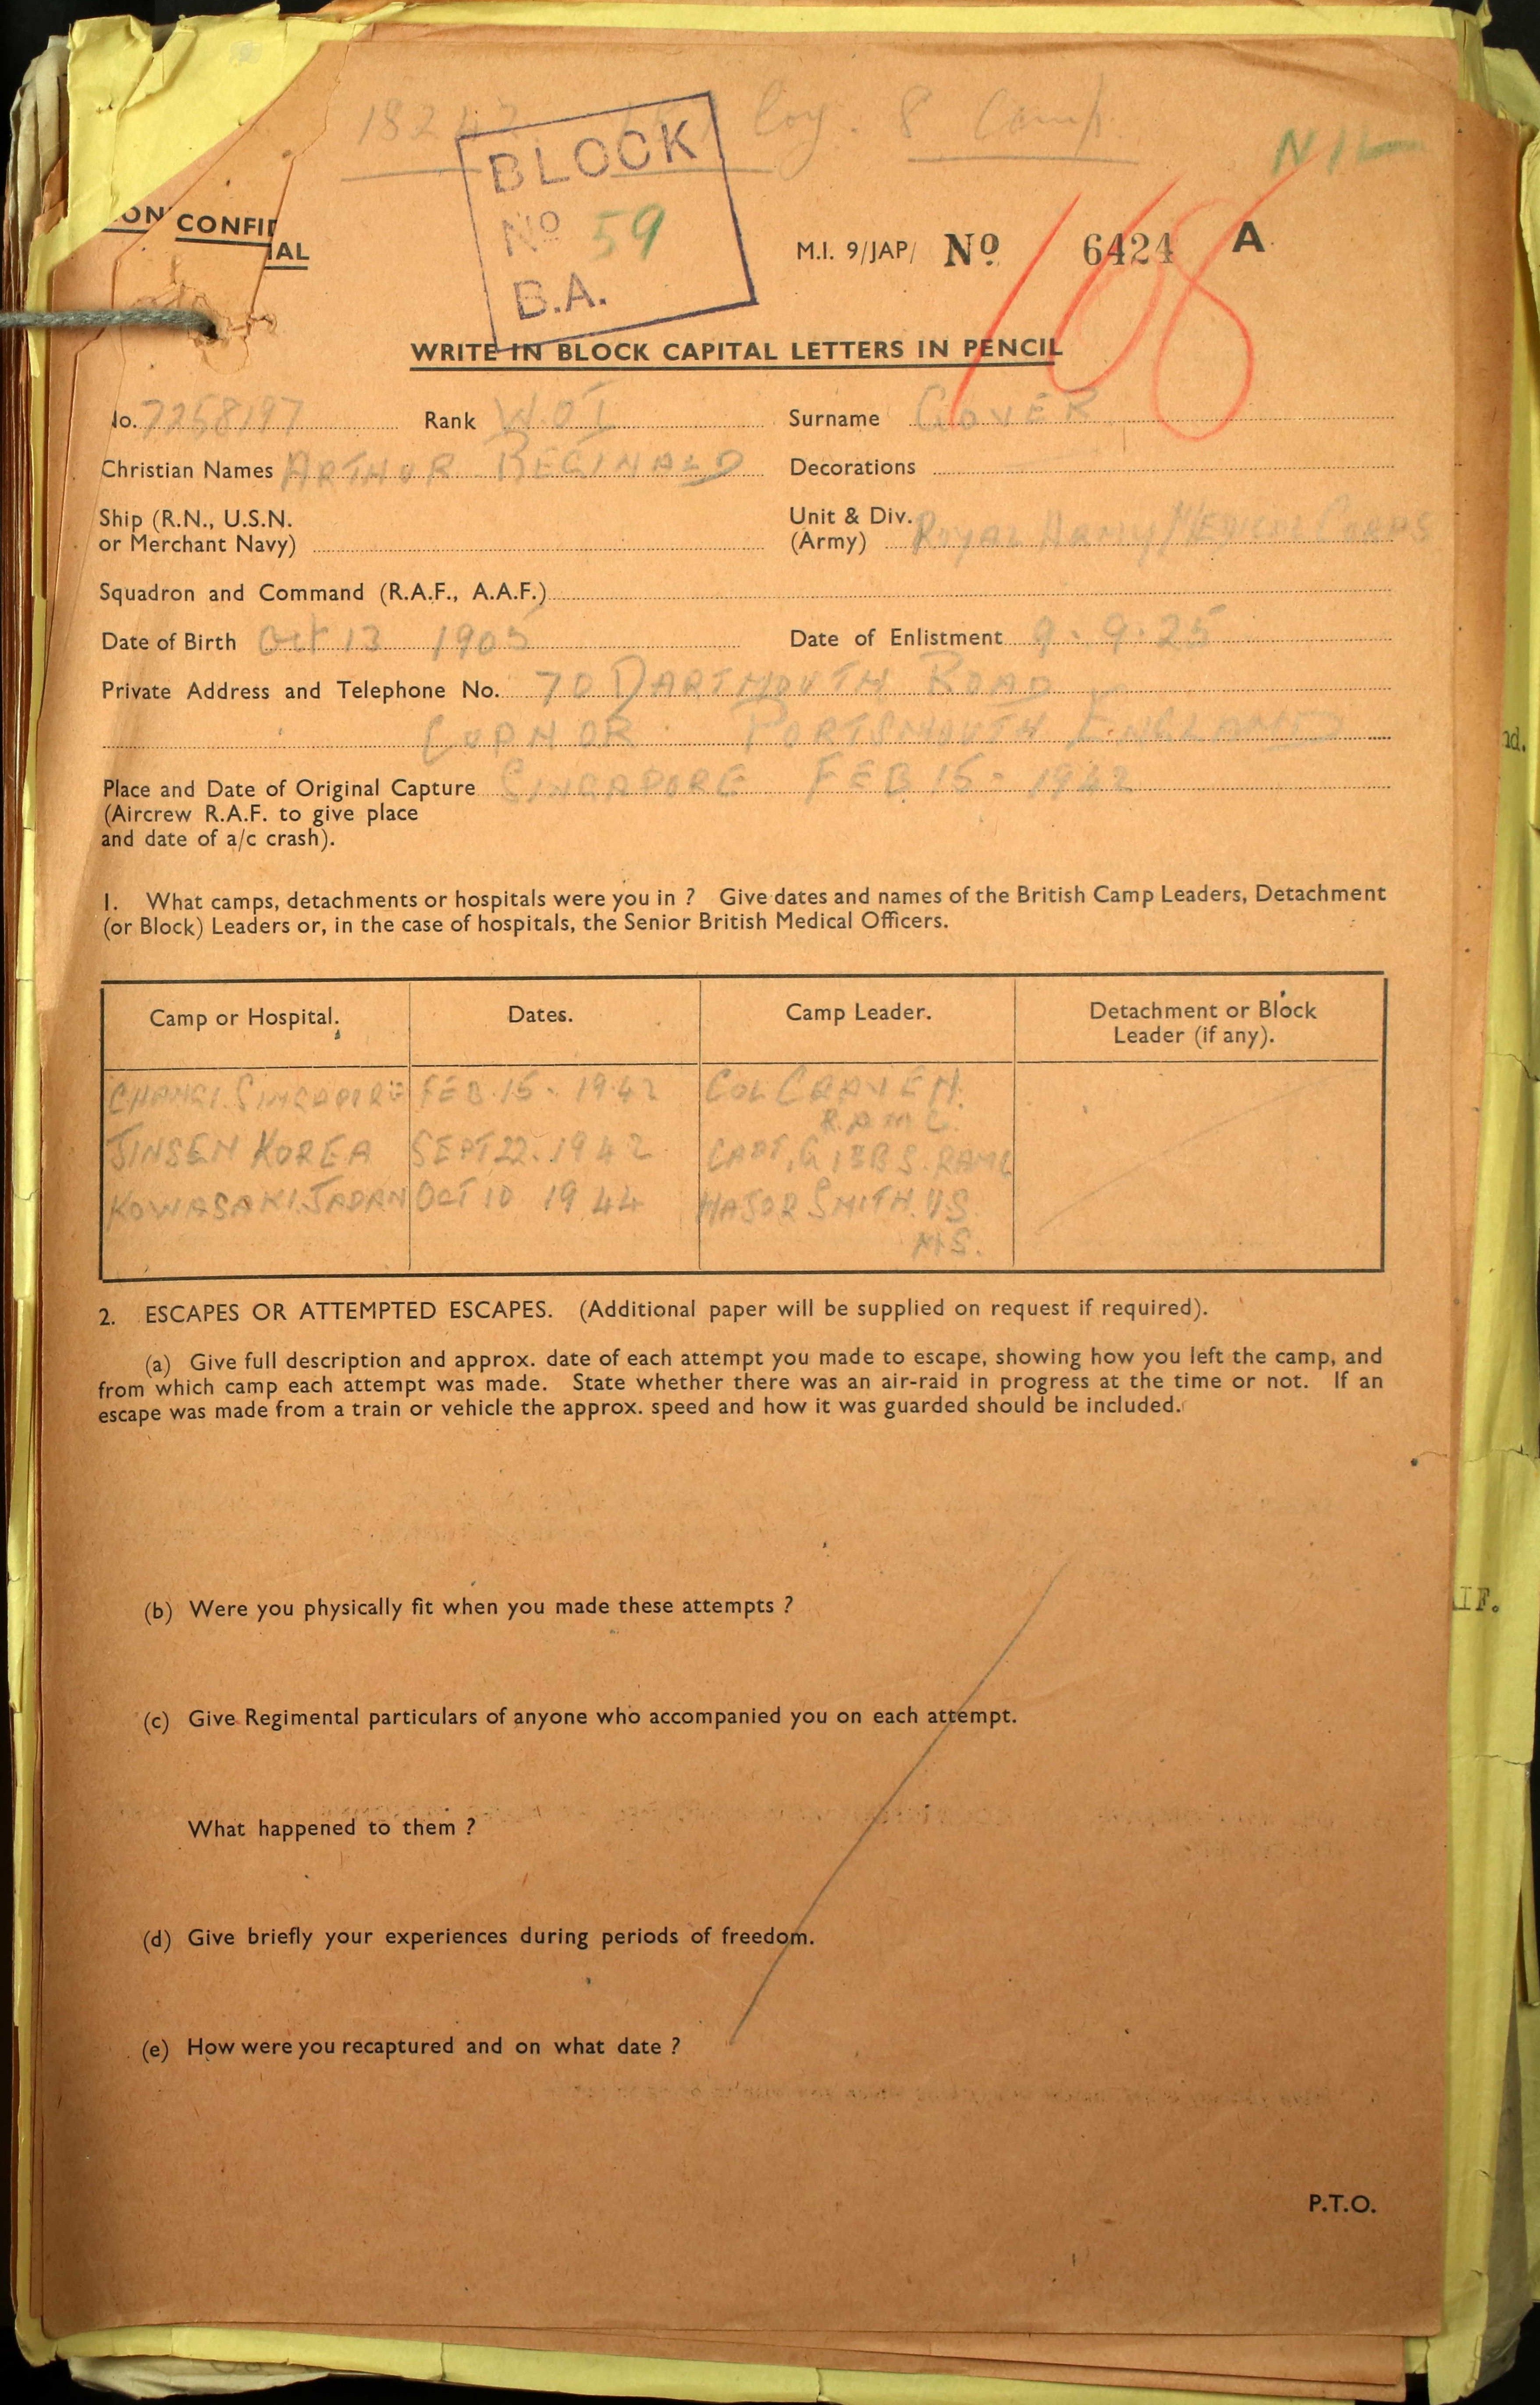 Coy. 8 Camp.
NIL
BLOCK
No 59
B.A.
CONFI
IAL
M.I. 9/JAP/ No 6424 A
108
WRITE IN BLOCK CAPITAL LETTERS IN PENCIL
No. 7258197 Rank W.O I Surname GOVER
Christian Names ARTHUR REGINALD Decorations
Ship (R.N., U.S.N. or Merchant Navy)
Unit & Div. (Army) ROYAL ARMY MEDICAL CORPS
Squadron and Command (R.A.F., A.A.F.)
Date of Birth Oct 13 1905 Date of Enlistment 9.9.25
Private Address and Telephone No. 70 DARTMOUTH ROAD
COPNOR PORTSMOUTH ENGLAND
Place and Date of Original Capture SINGAPORE FEB 15 - 1942
(Aircrew R.A.F. to give place
and date of a/c crash).
1. What camps, detachments or hospitals were you in ? Give dates and names of the British Camp Leaders, Detachment
(or Block) Leaders or, in the case of hospitals, the Senior British Medical Officers.
Camp or Hospital. Dates. Camp Leader. Detachment or Block
Leader (if any).
CHANGI. SINGAPORE FEB. 15 - 1942 COL CRAVEN.
R.A.M.C.
JINSEN KOREA SEPT 22. 1942 CAPT. GIBBS. RAMC
KOWASAKI. JAPAN OCT 10 1944 MAJOR SMITH. U.S.
M.S.
2. ESCAPES OR ATTEMPTED ESCAPES. (Additional paper will be supplied on request if required).
(a) Give full description and approx. date of each attempt you made to escape, showing how you left the camp, and
from which camp each attempt was made. State whether there was an air-raid in progress at the time or not. If an
escape was made from a train or vehicle the approx. speed and how it was guarded should be included.
(b) Were you physically fit when you made these attempts ?
(c) Give Regimental particulars of anyone who accompanied you on each attempt.
What happened to them ?
(d) Give briefly your experiences during periods of freedom.
(e) How were you recaptured and on what date ?
P.T.O.